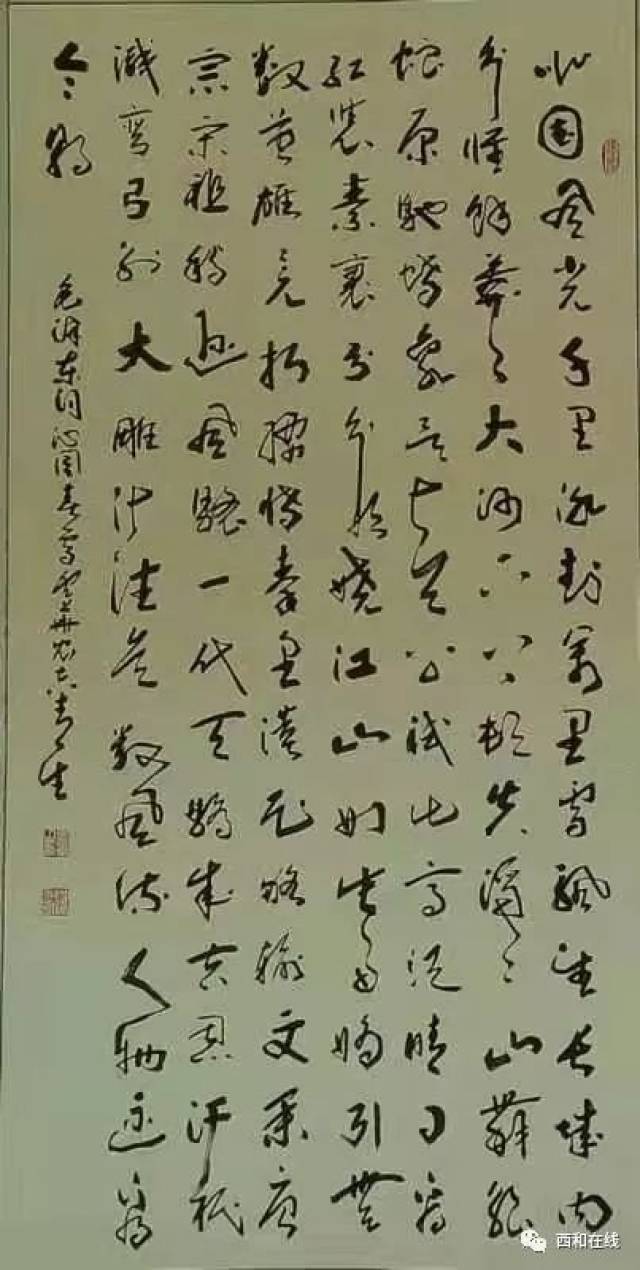 北国风光千里冰封万里雪飘望长城内
外惟馀莽々大河上下顿失滔々山舞银
蛇原驰蜡象欲与天公试比高须晴日看
红装素裹分外妖娆江山如此多娇引無
数英雄竞折腰惜秦皇汉武略输文采唐
宗宋祖稍逊风骚一代天骄成吉思汗祇
识弯弓射大雕俱往矣数风流人物还看
今朝
毛泽东词沁园春雪
西和在线